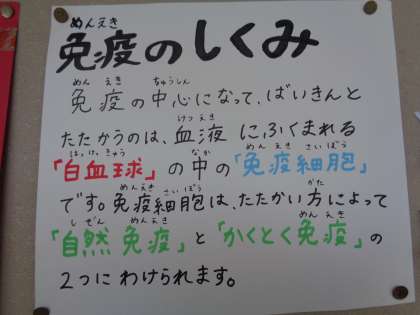 めんえき
免疫のしくみ
めん えき ちゅうしん
免疫の中心になって、ばいきんと
けつ えき
たたかうのは、血液にふくまれる
はっ けっ きゅう なか めん えき さい ぼう
「白血球」の中の「免疫細胞」
めんえき さい ぼう かた
です。免疫細胞は、たたかい方によって
し ぜん めん えき めん えき
「自然免疫」と「かくとく免疫」の
2つにわけられます。